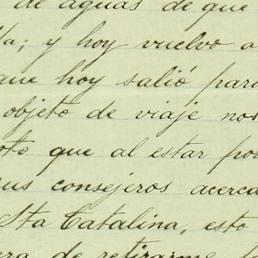 de aguas de que
; y hoy vuelvo a
que hoy salió para
objeto de viaje no
que al estar po
sus consejeros acerca
Sta Catalina, esto
de retirarme